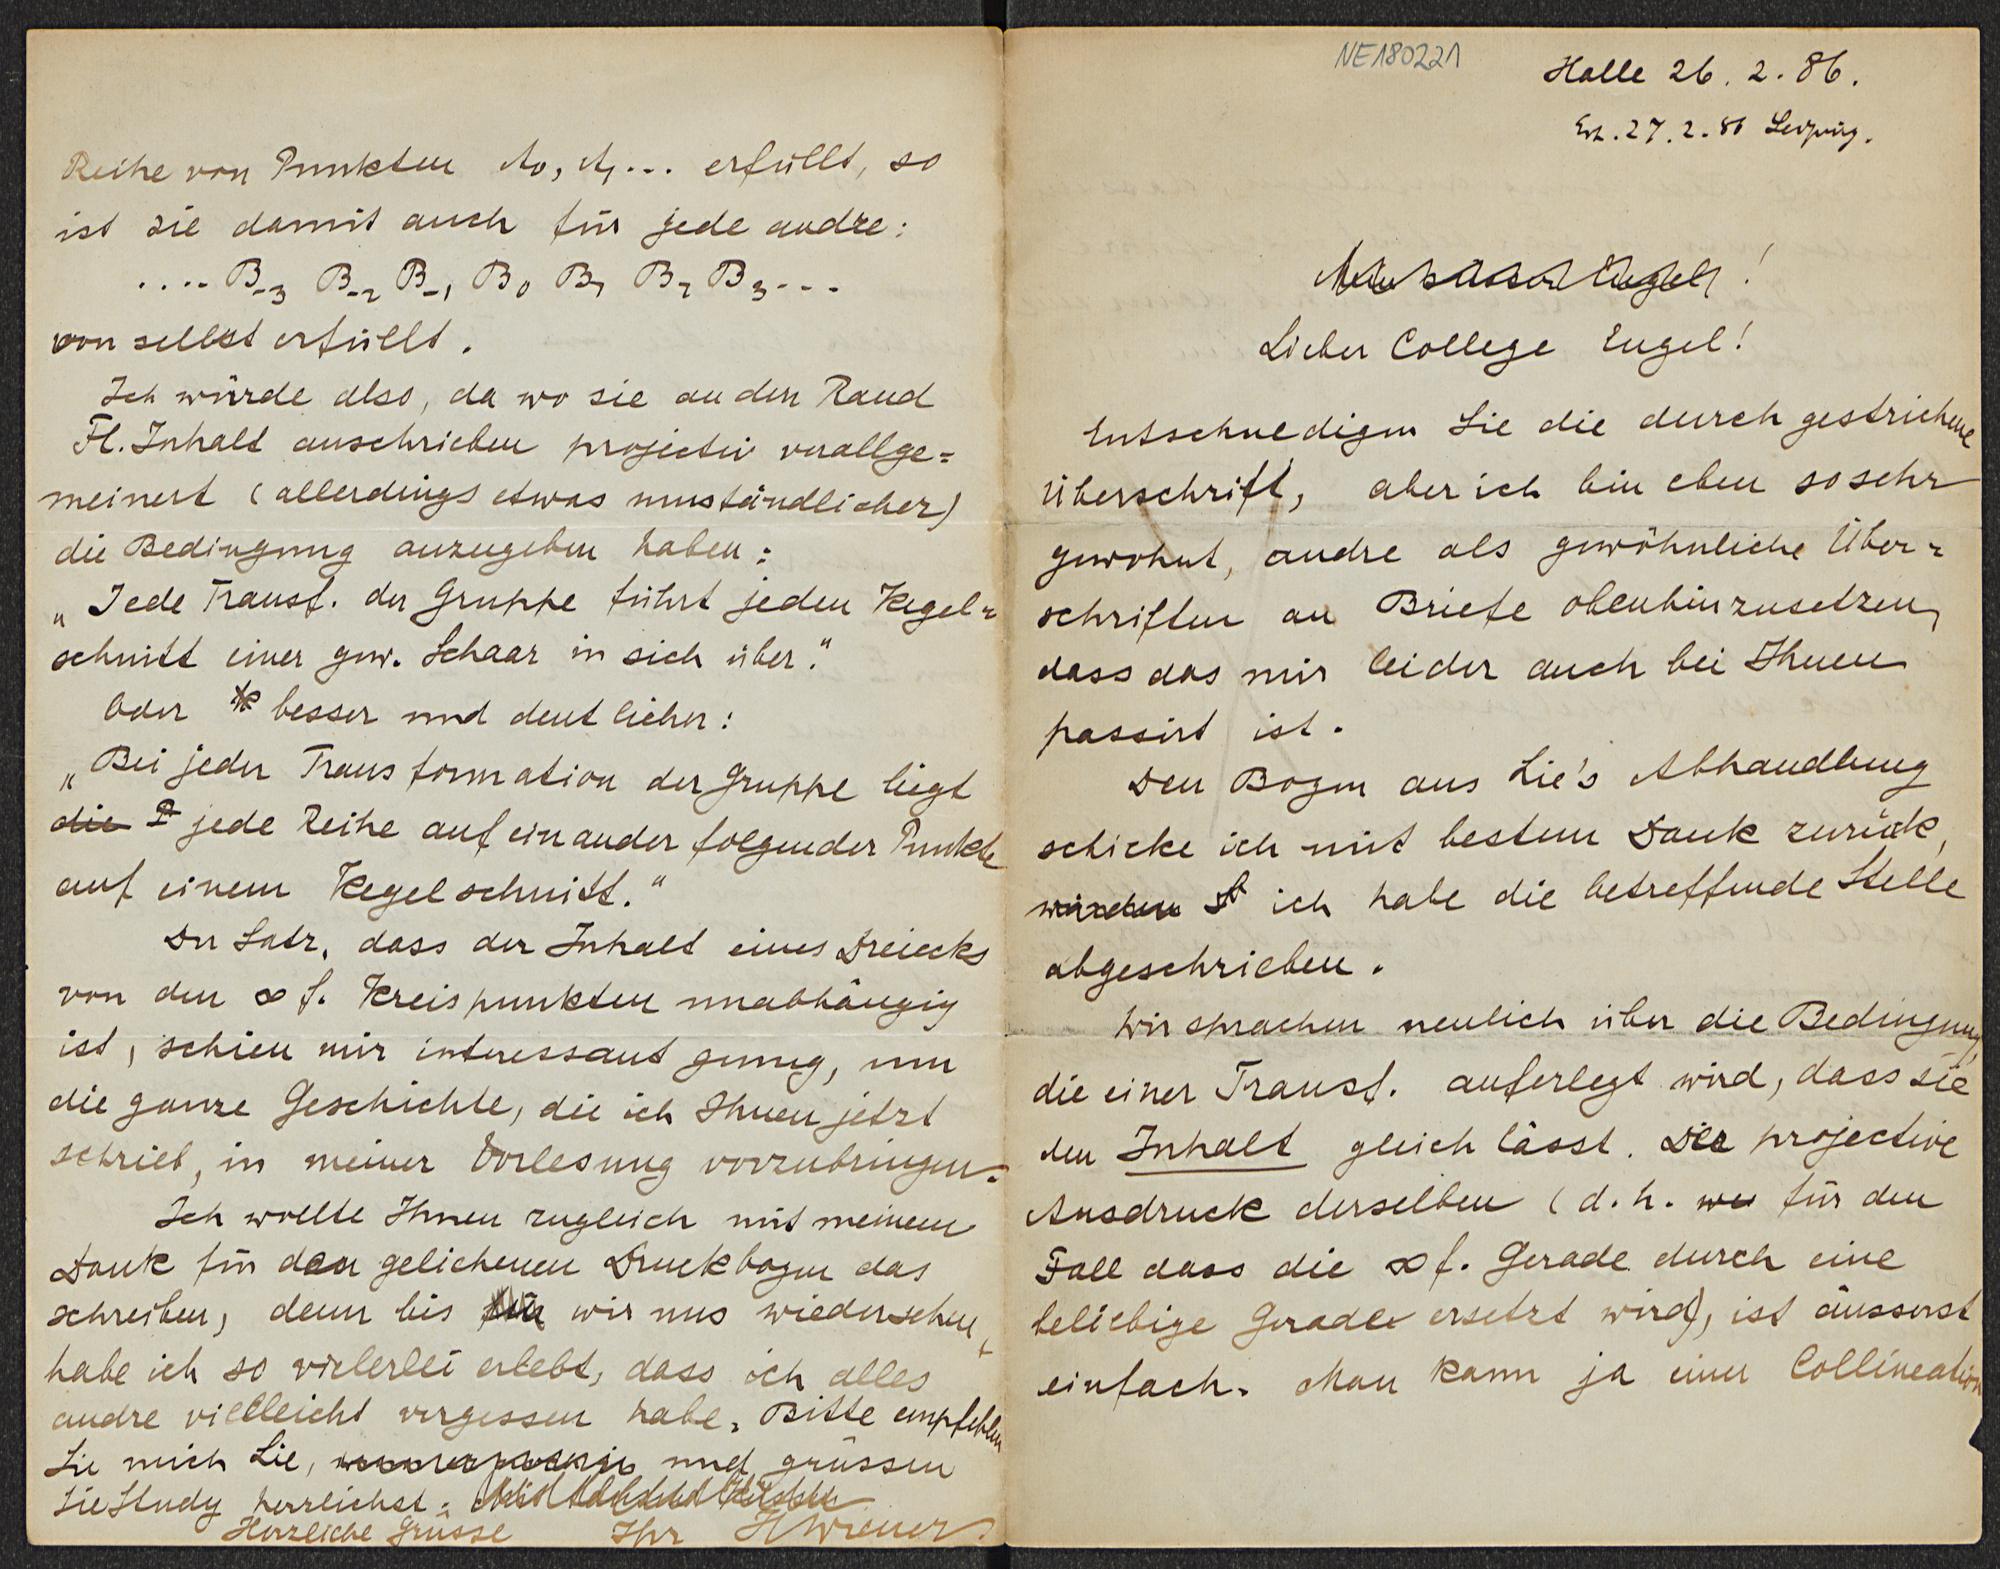 Reihe von Punkten A₀, A₁... erfüllt, so
ist sie damit auch für jede andre:
.... B₋₃ B₋₂ B₋₁ B₀ B₁ B₂ B₃ ...
von selbst erfüllt.
Ich würde also, da wo sie an den Rand
Fl. Inhalt anschrieben projectiv verallge=
meinert (allerdings etwas umständlicher)
die Bedingung anzugeben haben:
„Jede Transf. der Gruppe führt jeden Kegel=
schnitt einer gew. Schaar in sich über."
Oder besser und deutlicher:
„Bei jeder Transformation der Gruppe liegt
die P jede Reihe aufeinander folgender Punkte
auf einem Kegelschnitt."
Der Satz, dass der Inhalt eines Dreiecks
von den ∞ f. Kreispunkten unabhängig
ist, schien mir interessant genug, um
die ganze Geschichte, die ich Ihnen jetzt
schrieb, in meiner Vorlesung vorzubringen.
Ich wollte Ihnen zugleich mit meinem
Dank für den geliehenen Druckbogen das
schreiben, denn bis wir uns wiedersehen,
habe ich so vielerlei erlebt, dass ich alles
andre vielleicht vergessen habe. Bitte empfehlen
Sie mich Lie, und grüssen
Sie Study herzlichst.
Herzliche Grüsse Ihr HWiener.
NE180221
Halle 26. 2. 86.
Erh. 27. 2. 86 Leipzig.
Lieber College Engel!
Entschuldigen Sie die durchgestrichene
Überschrift, aber ich bin eben so sehr
gewohnt, andre als gewöhnliche Über=
schriften an Briefe obenhinzusetzen,
dass das mir leider auch bei Ihnen
passirt ist.
Den Bogen aus Lie's Abhandlung
schicke ich mit bestem Dank zurück,
ich habe die betreffende Stelle
abgeschrieben.
Wir sprachen neulich über die Bedingung,
die einer Transf. auferlegt wird, dass sie
den Inhalt gleich lässt. Der projective
Ausdruck derselben (d. h. für den
Fall dass die ∞ f. Gerade durch eine
beliebige Gerade ersetzt wird), ist äusserst
einfach. Man kann ja einer Collineation